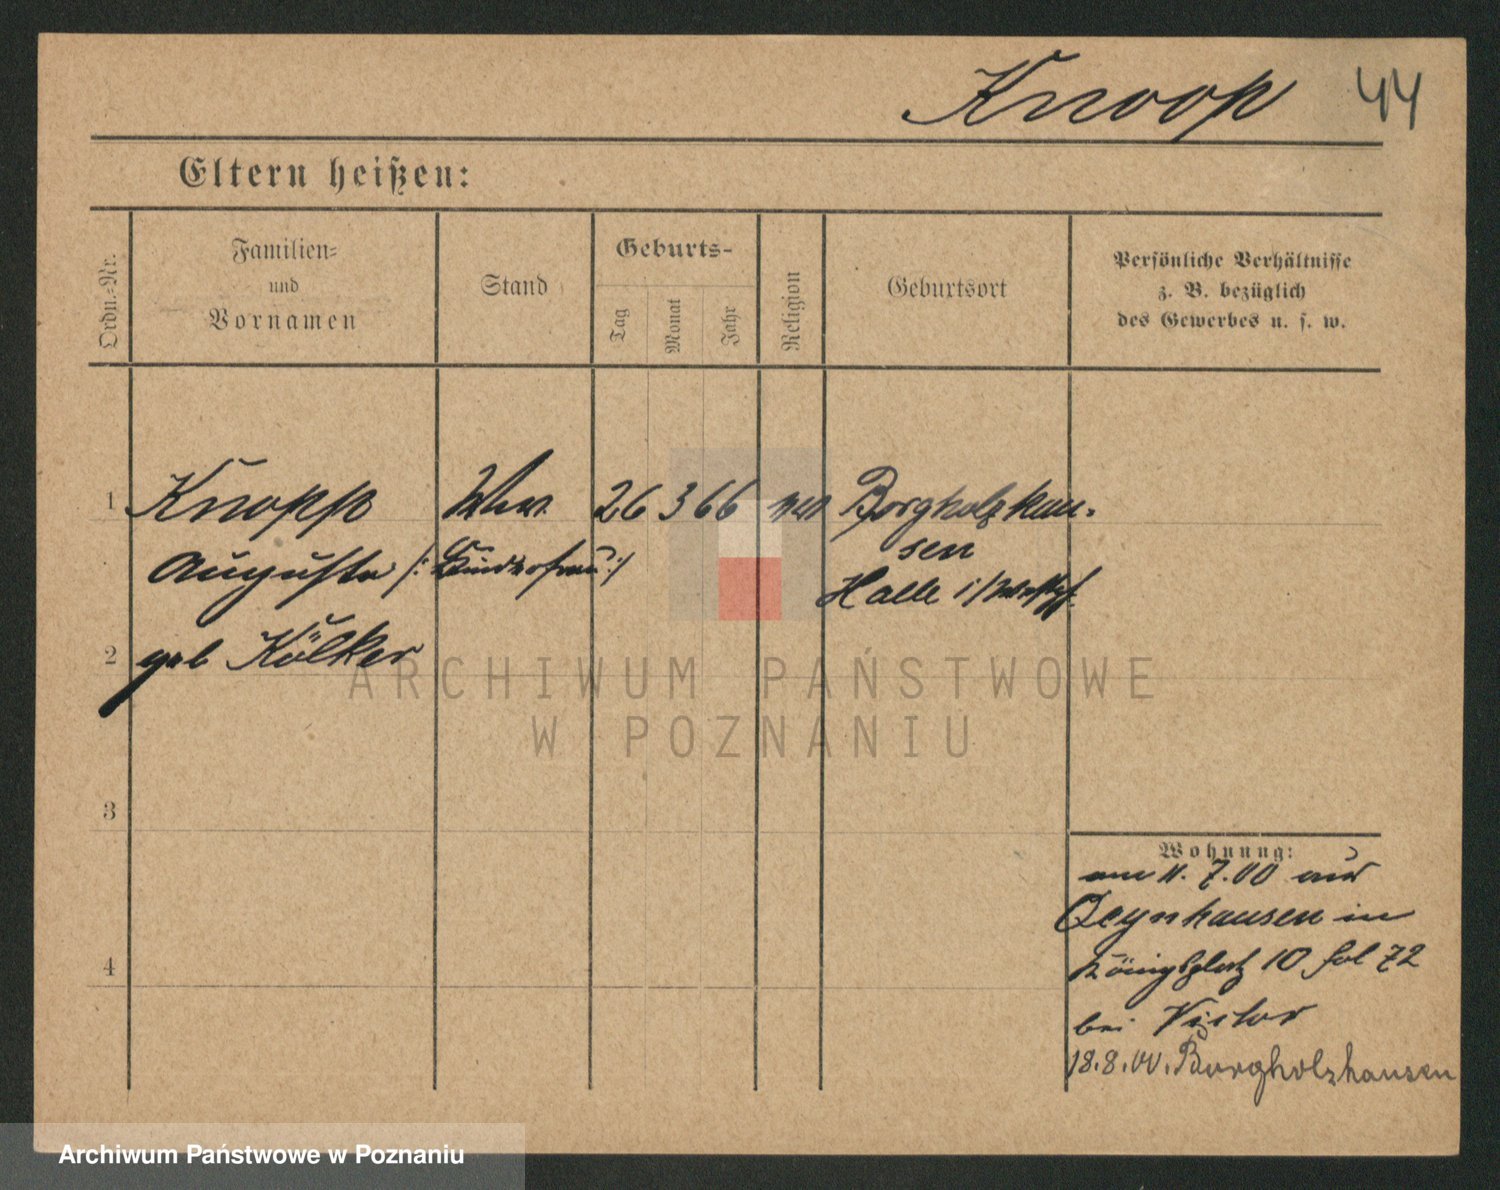 Knoop 44
Eltern heißen:
Ordn.-Nr.
Familien-
und
Vornamen
Stand
Geburts-
Tag
Monat
Jahr
Religion
Geburtsort
Persönliche Verhältnisse
z. B. bezüglich
des Gewerbes u. s. w.
1 Knopp Wwe 26 3 66 Borgholzhau-
sen
Auguste /: Kinderfrau :/
Halle i/Westpf.
2 geb Kölker
3
4
Wohnung:
am 11. 7.00 aus
Oeynhausen in
Königsplatz 10 fol 72
bei Victor
18.8.00. Borgholzhausen
ARCHIWUM PAŃSTWOWE
W POZNANIU
Archiwum Państwowe w Poznaniu